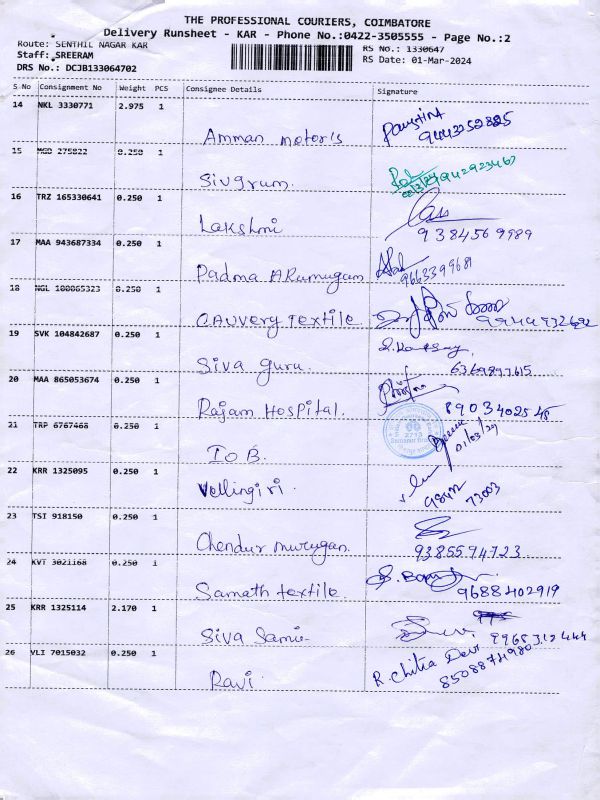 THE PROFESSIONAL COURIERS, COIMBATORE
Delivery Runsheet - KAR - Phone No.:0422-3505555 - Page No.:2
Route: SENTHIL NAGAR KAR
RS No.: 1330647
Staff: SREERAM
RS Date: 01-Mar-2024
DRS No.: DCJB133064702
S No Consignment No Weight PCS Consignee Details Signature
14 NKL 3330771 2.975 1
Amman motor's
15 MGD 275822 0.250 1
Sivgrum.
16 TRZ 165330641 0.250 1
Lakshmi
9384569989
17 MAA 943687334 0.250 1
Padma Arumugam
9663399681
18 NGL 100065323 0.250 1
Cauvery textile.
19 SVK 104842687 0.250 1
Siva guru.
6369897615
20 MAA 865053674 0.250 1
Rajam Hospital.
8903402545
21 TRP 6767468 0.250 1
IOB.
01/03/24
22 KRR 1325095 0.250 1
Vellingiri.
98422 73003
23 TSI 918150 0.250 1
Chendur murugan.
9385594723
24 KVT 3021168 0.250 1
Samath textile.
9688402919
25 KRR 1325114 2.170 1
Siva Samie
26 VLI 7015032 0.250 1
Ravi.
R. Chitra Devi